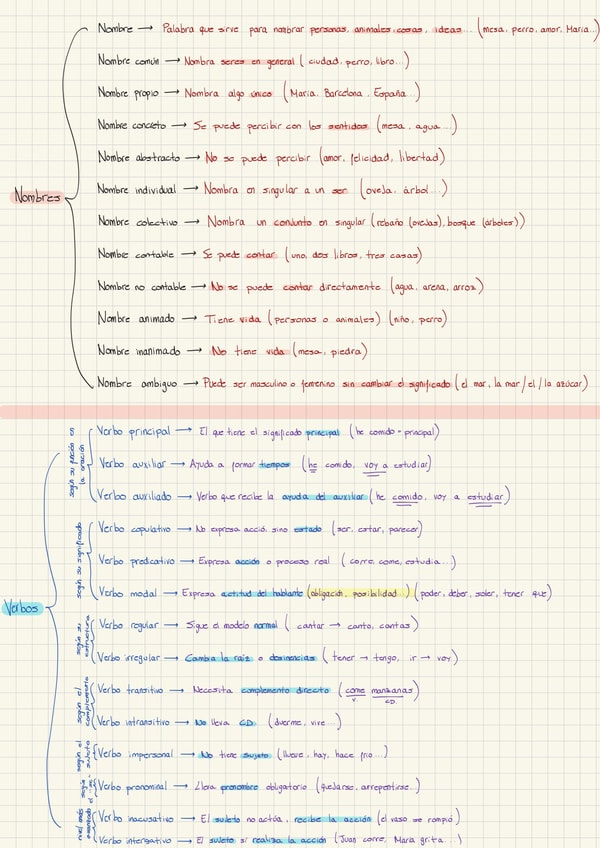 Nombres
Nombre → Palabra que sirve para nombrar personas, animales, cosas, ideas... (mesa, perro, amor, Maria...)
Nombre común → Nombra seres en general ( ciudad, perro, libro...)
Nombre propio → Nombra algo único (Maria, Barcelona, España...)
Nombre concreto → Se puede percibir con los sentidos (mesa, agua...)
Nombre abstracto → No se puede percibir (amor, felicidad, libertad)
Nombre individual → Nombra en singular a un ser (oveja, árbol...)
Nombre colectivo → Nombra un conjunto en singular (rebaño (ovejas), bosque (árboles))
Nombre contable → Se puede contar (uno, dos libros, tres casas)
Nombre no contable → No se puede contar directamente (agua, arena, arroz)
Nombre animado → Tiene vida (personas o animales) (niño, perro)
Nombre inanimado → No tiene vida (mesa, piedra)
Nombre ambiguo → Puede ser masculino o femenino sin cambiar el significado (el mar, la mar/el/la azúcar)
Verbos
según su función en la oración
Verbo principal → El que tiene el significado principal (he comido - principal)
Verbo auxiliar → Ayuda a formar tiempos (he comido, voy a estudiar)
Verbo auxiliado → Verbo que recibe la ayuda del auxiliar (he comido, voy a estudiar)
según su significado
Verbo copulativo → No expresa acció, sino estado (ser, estar, parecer)
Verbo predicativo → Expresa acción o proceso real (corre, come, estudia...)
Verbo modal → Expresa actitud del hablante (obligación, posibilidad...) (poder, deber, soler, tener que)
según su estructura
Verbo regular → Sigue el modelo normal ( cantar → canto, cantas)
Verbo irregular → Cambia la raíz o desinencias ( tener → tengo, ir → voy)
según el complemento
Verbo transitivo → Necesita complemento directo (come manzanas)
V. CD.
Verbo intransitivo → No lleva CD. (duerme, vive...)
según el sujeto
Verbo impersonal → No tiene sujeto (llueve, hay, hace frío...)
según
Verbo pronominal → Lleva pronombre obligatorio (quejarse, arrepentirse...)
Verbo inacusativo → El sujeto no actúa, recibe la acción (el vaso se rompió)
Verbo intergativo → El sujeto sí realiza la acción (Juan corre, Maria grita...)